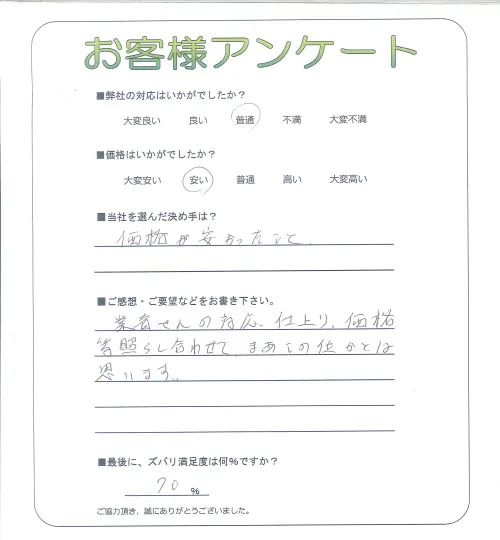 お客様アンケート
■弊社の対応はいかがでしたか？
大変良い 良い 普通 不満 大変不満
■価格はいかがでしたか？
大変安い 安い 普通 高い 大変高い
■当社を選んだ決め手は？
価格が安かったこと、
■ご感想・ご要望などをお書き下さい。
業者さんの対応、仕上り、価格
等照らし合わせて、まあこの位かとは
思います。
■最後に、ズバリ満足度は何％ですか？
70 %
ご協力頂き、誠にありがとうございました。